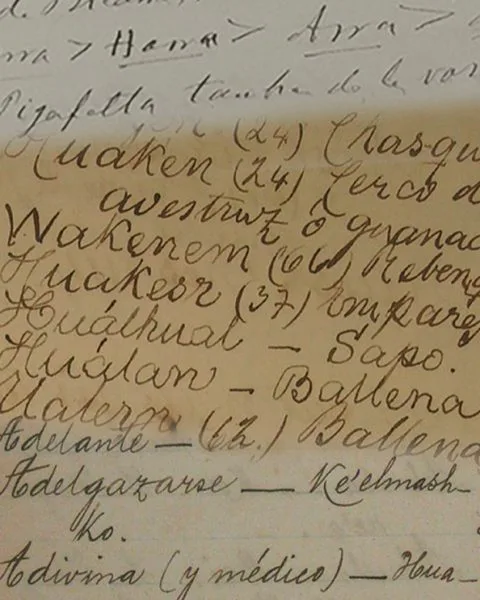 > Harra > Arra >
Pigafetta
(24) Chasqu
Huaken (24) Cerco d
avestruz ó guanac
Wakenem (66) Rebenq
Huakesr (37) Empare
Huálhual — Sapo.
Huálan — Ballena
Ualern (62.) Ballena
Adelante —
Adelgazarse — Ke'elmash-
ko.
Adivina (y médico) — Hua-